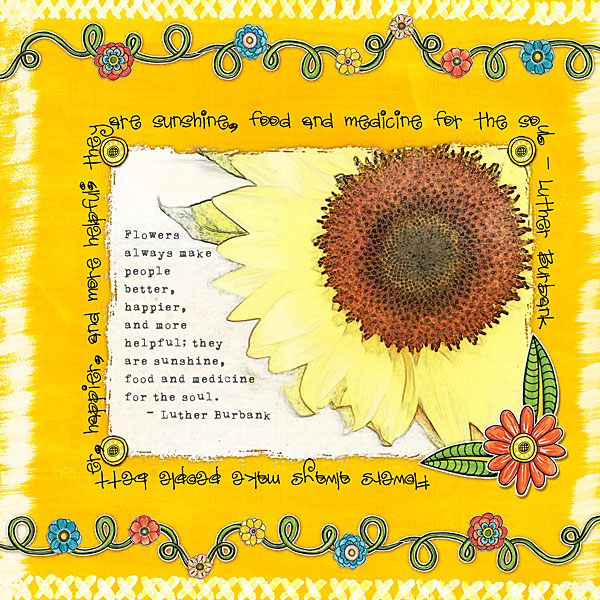 Flowers
always make
people
better,
happier,
and more
helpful; they
are sunshine,
food and medicine
for the soul.
- Luther Burbank
Flowers always make people bett
er, happier, and more helpful; they
are sunshine, food and medicine for the so
ul. - Luther Burbank